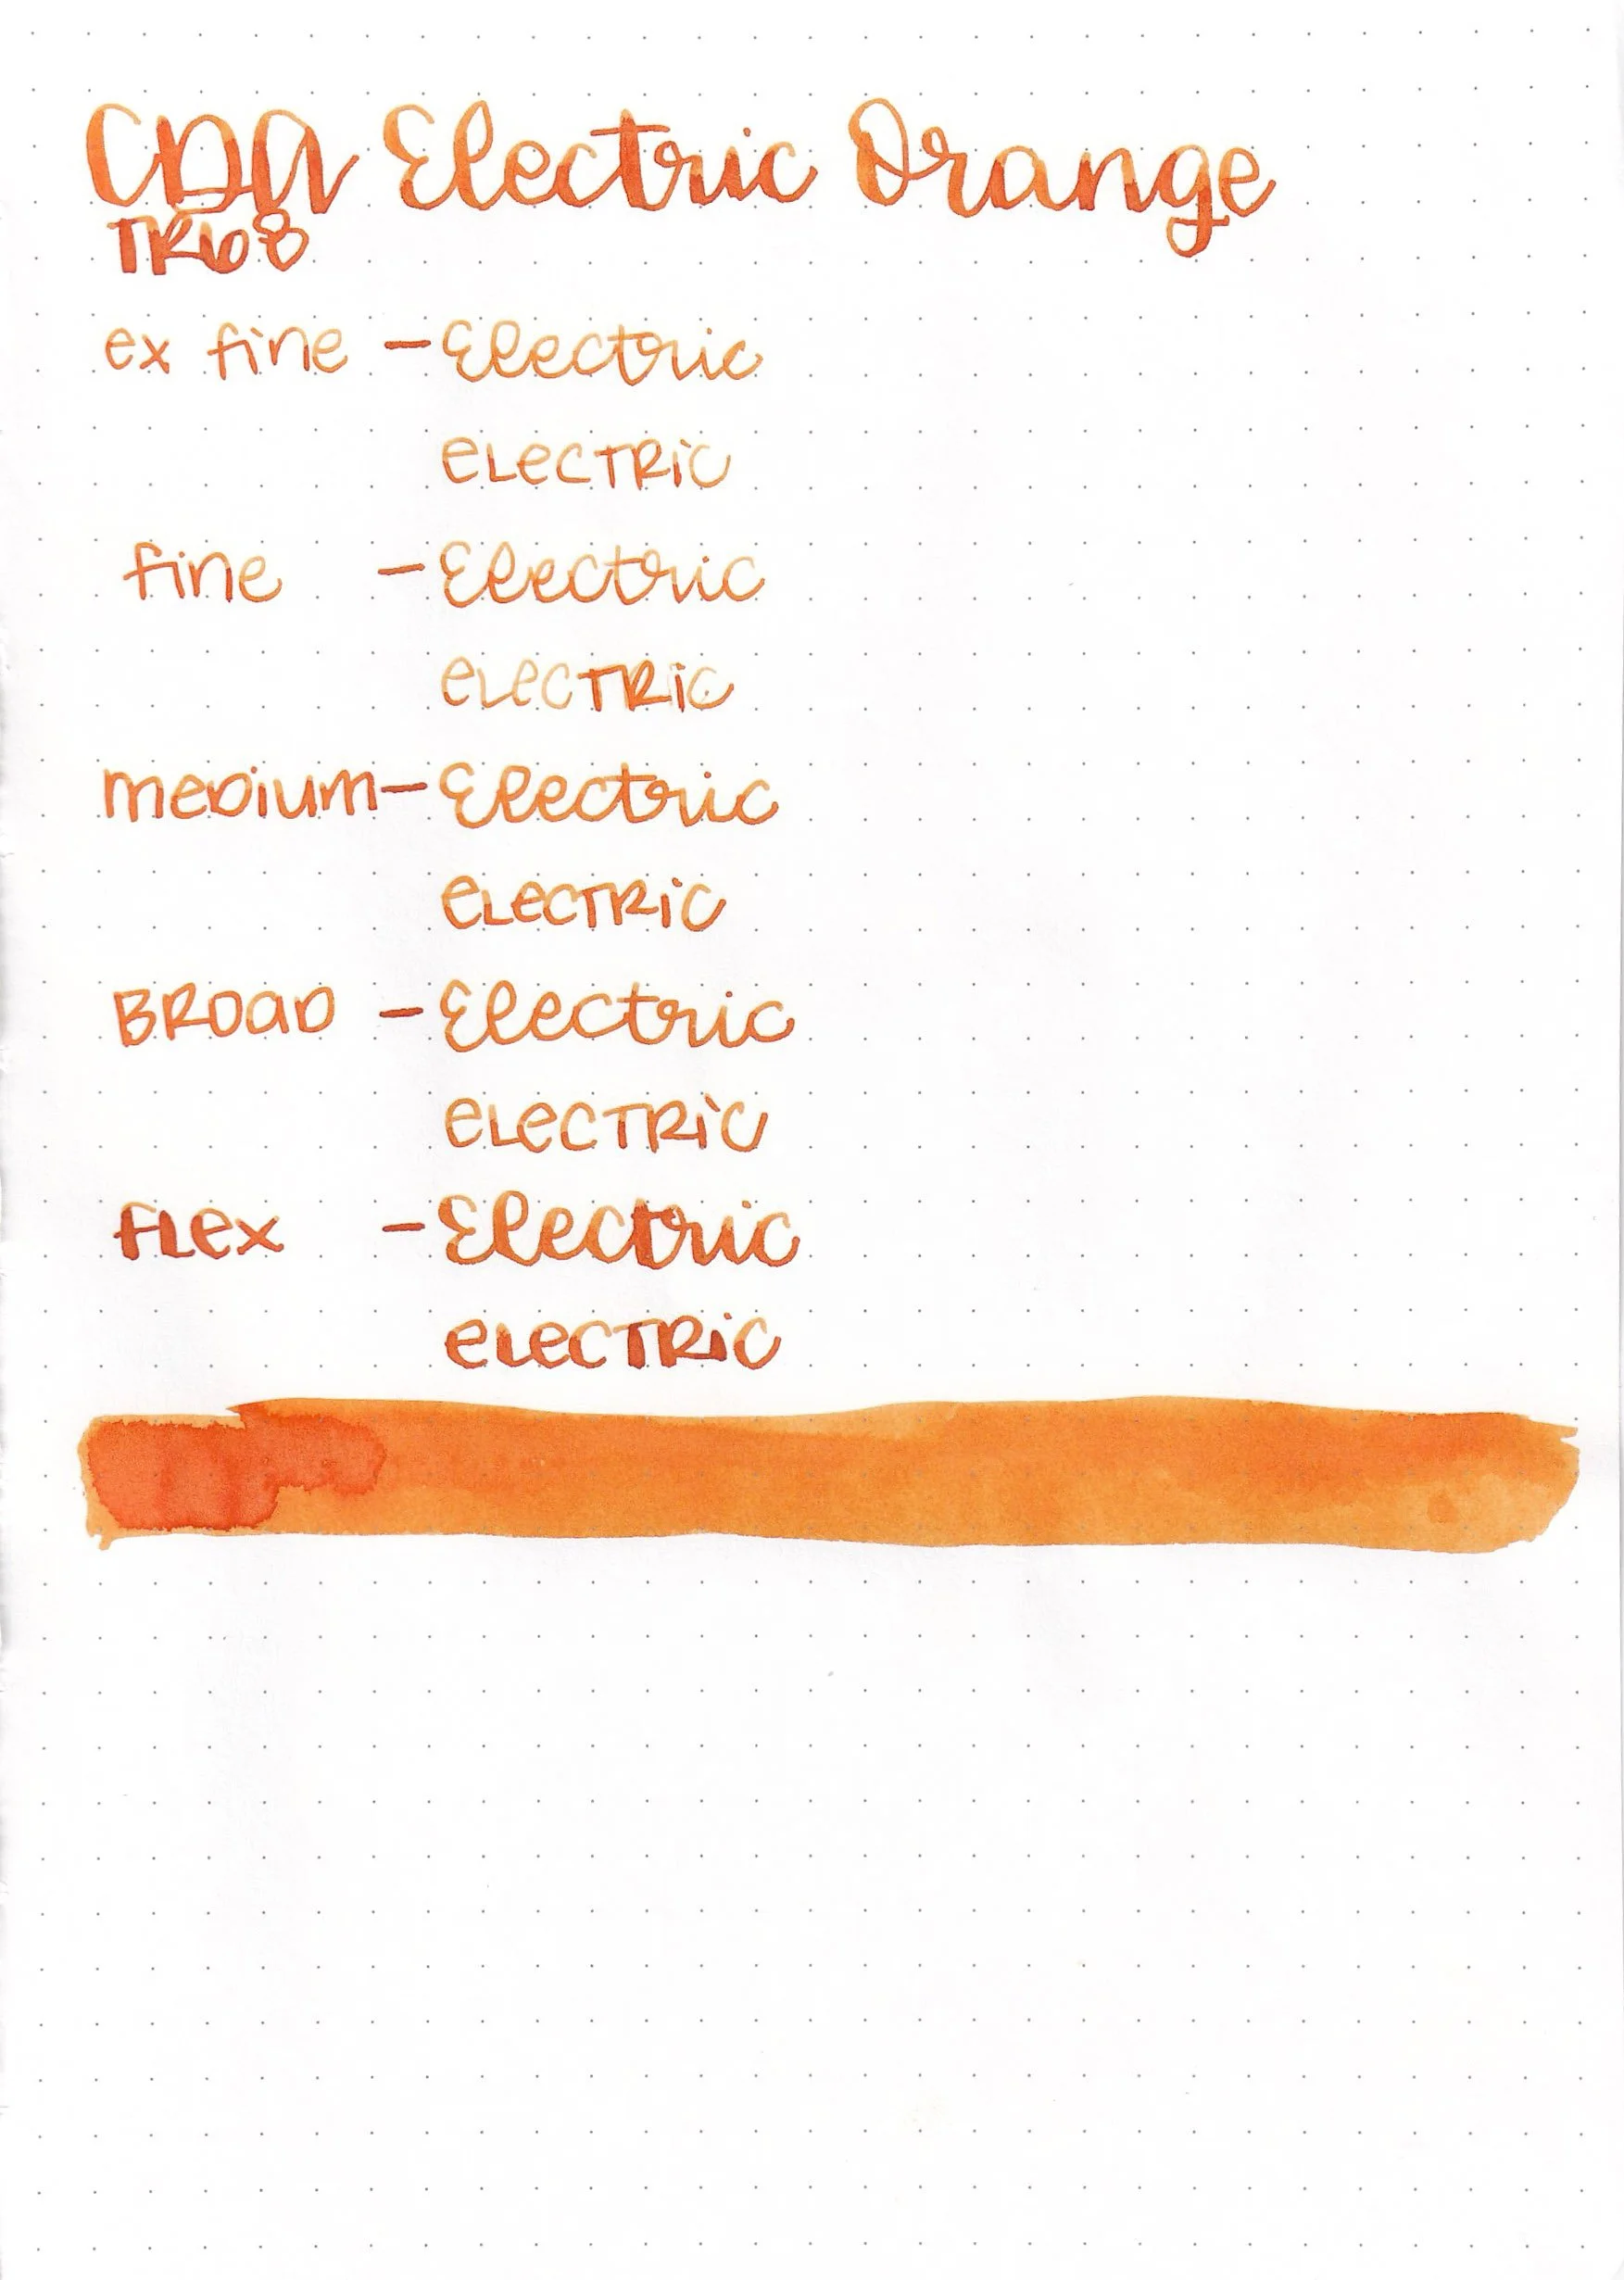 CDA Electric Orange
TR68
ex fine - Electric
eLecTRic
fine - Electric
eLecTRic
meDium - Electric
eLecTRic
BROaD - Electric
eLecTRic
fLex - Electric
eLecTRic